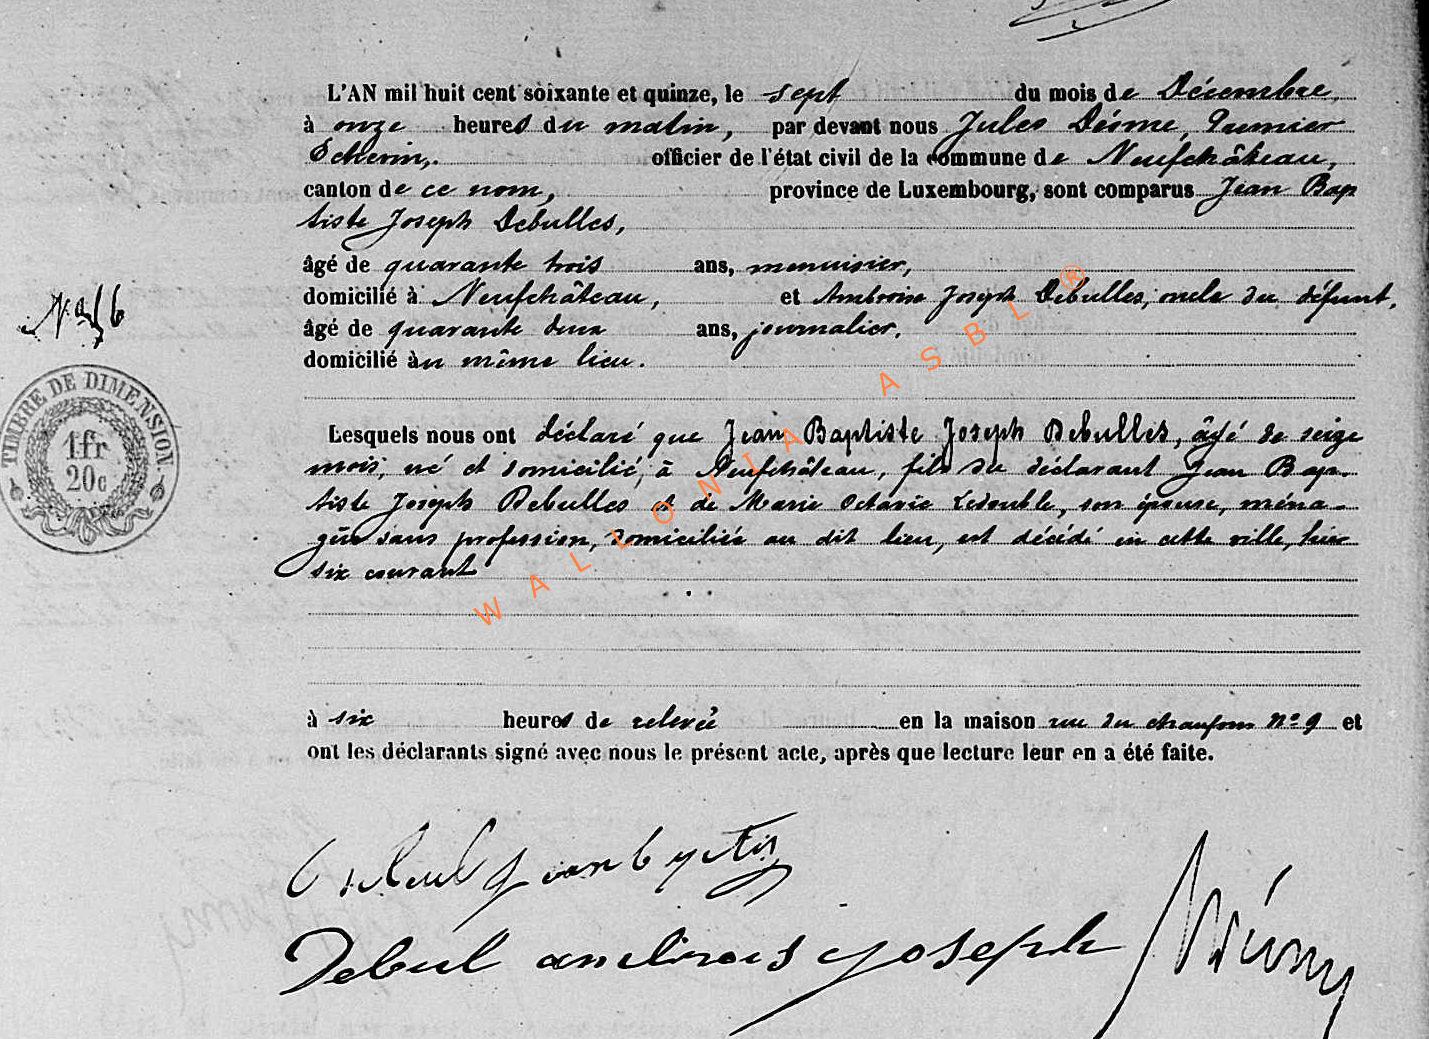 L'AN mil huit cent soixante et quinze, le sept du mois de Décembre,
à onze heures du matin, par devant nous Jules Désme, Premier
Echevin, officier de l'état civil de la commune de Neufchâteau,
canton de ce nom, province de Luxembourg, sont comparus Jean Bap
tiste Joseph Debulles,
âgé de quarante trois ans, menuisier,
domicilié à Neufchâteau, et Ambroise Joseph Debulles, oncle du défunt,
âgé de quarante deux ans, journalier,
domicilié au même lieu.
TIMBRE DE DIMENSION.
1fr
20c
Lesquels nous ont déclaré que Jean Baptiste Joseph Debulles, âgé de seize
mois, né et domicilié, à Neufchâteau, fils du déclarant Jean Bap-
tiste Joseph Debulles et de Marie Octavie Ledouble, son épouse, ména-
gère sans profession, domiciliée au dit lieu, est décédé en cette ville, hier
six courant
à six heures de relevée en la maison rue du chaufour n° 9 et
ont les déclarants signé avec nous le présent acte, après que lecture leur en a été faite.
Debul ambrois joseph
WALLONIA ASBL ®